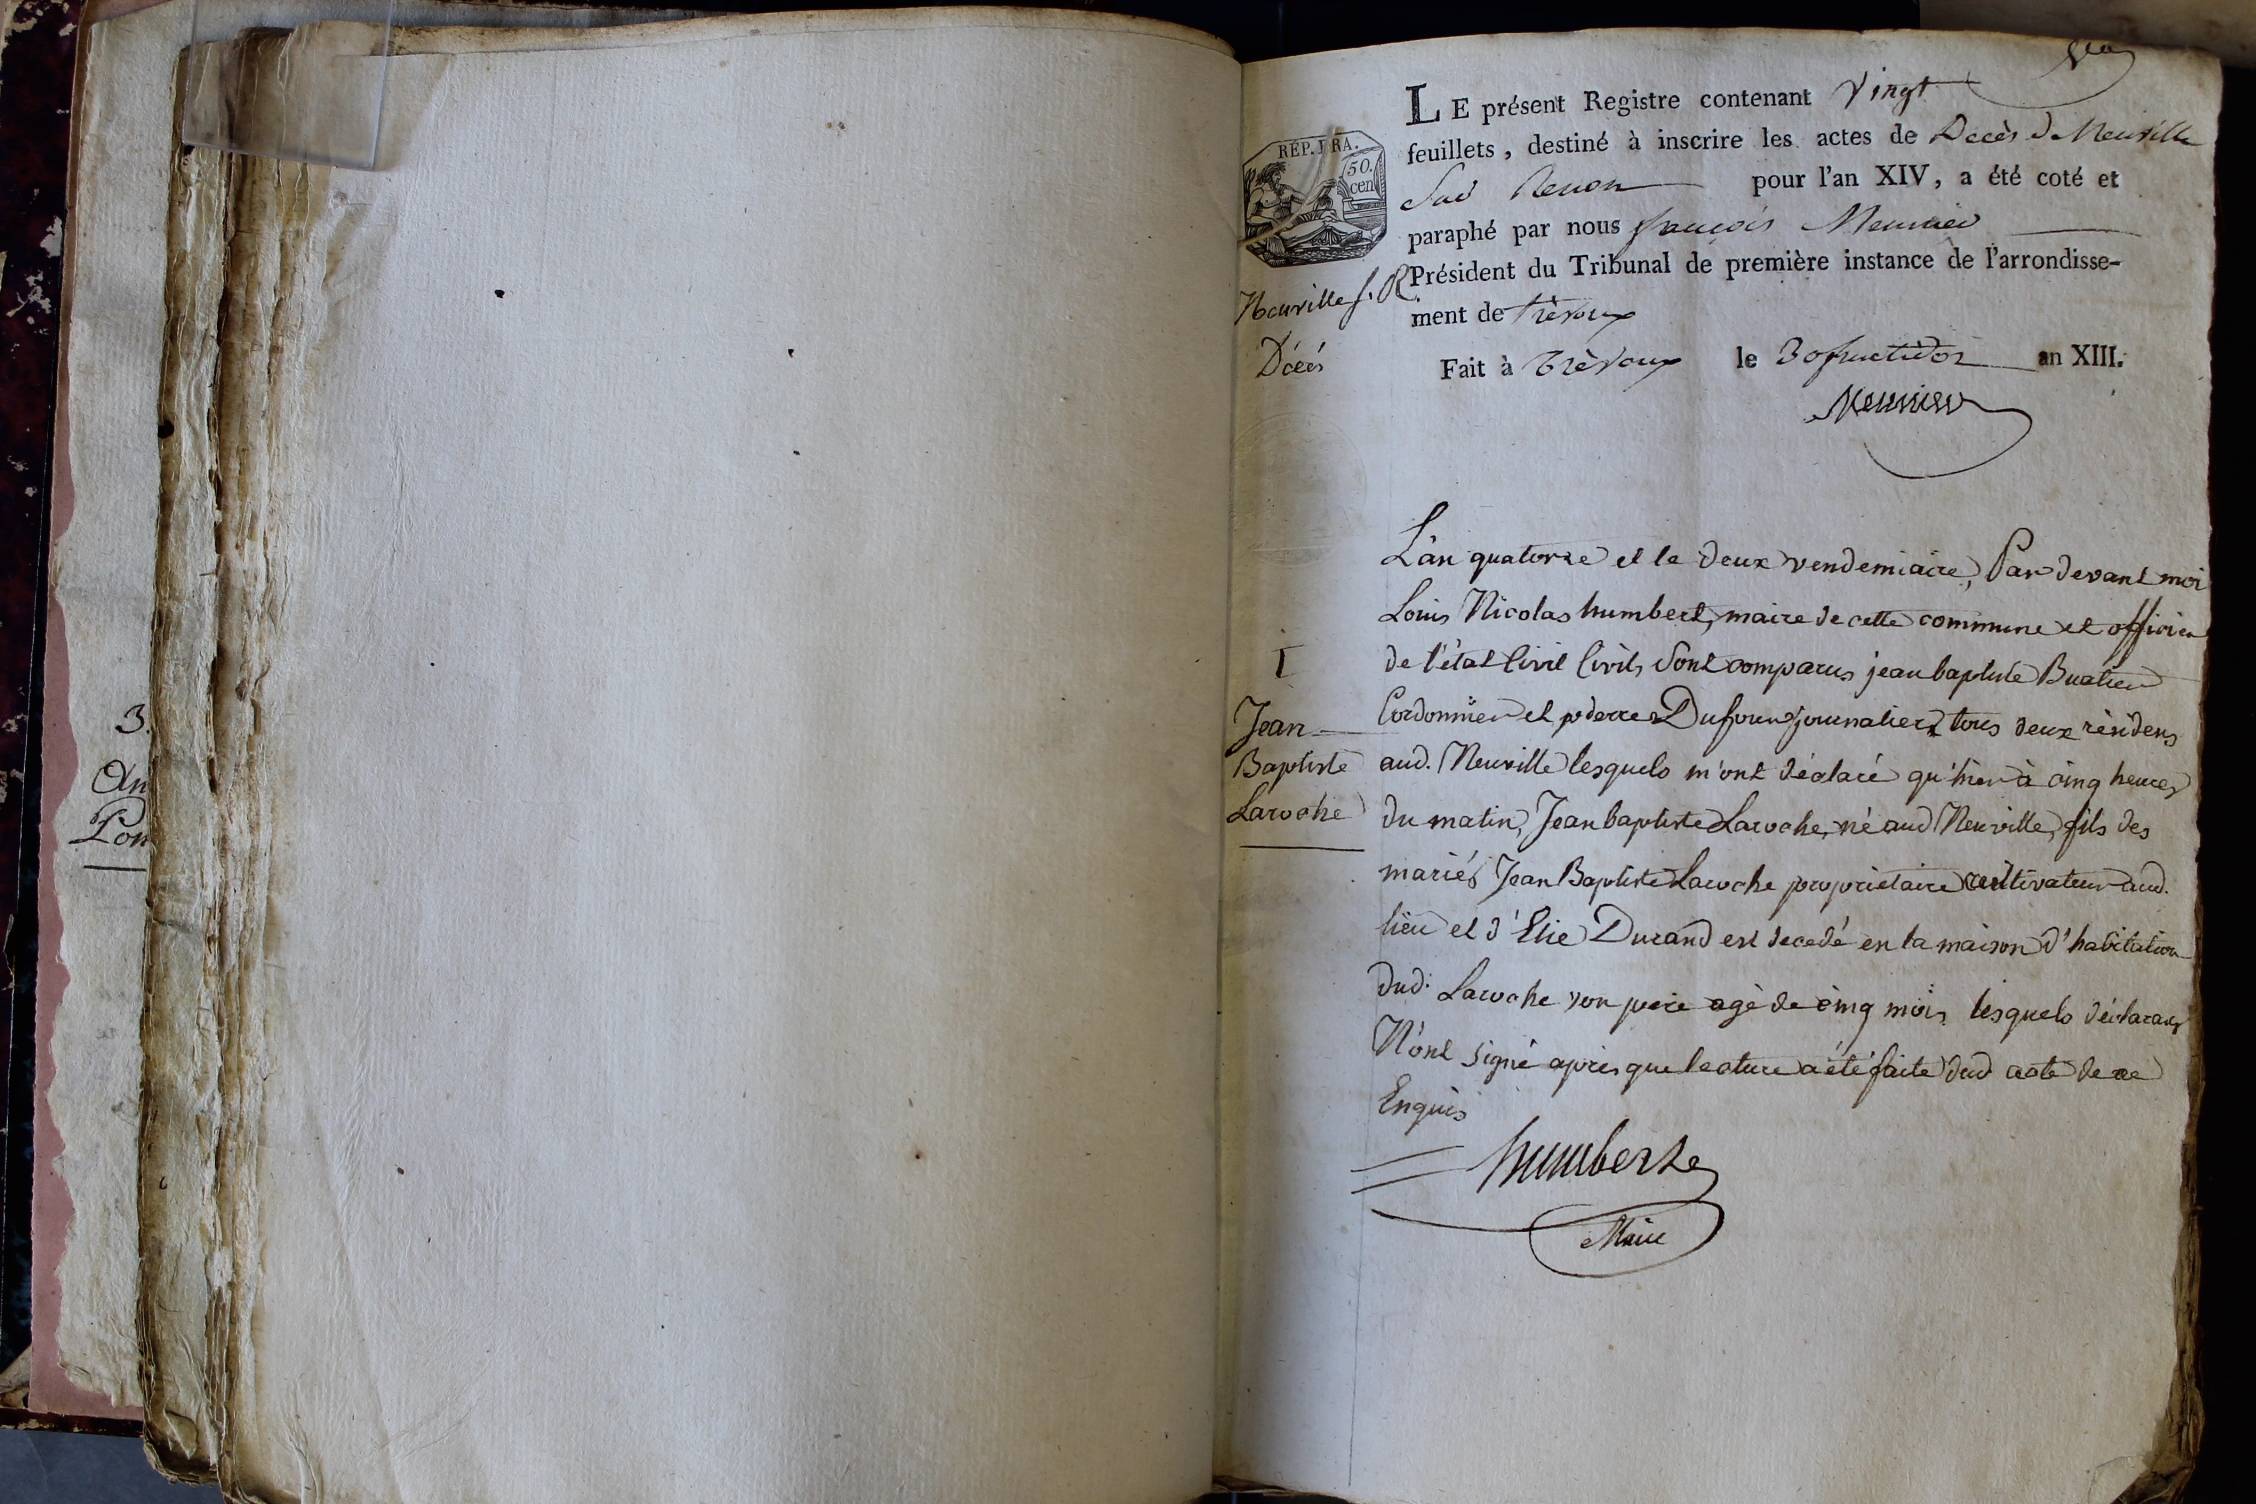 LE présent Registre contenant vingt
feuillets, destiné à inscrire les actes de Decès de Neuville
Sur Renon pour l'an XIV, a été coté et
paraphé par nous françois Meunier
Président du Tribunal de première instance de l'arrondisse-
ment de trévoux
Fait à trèvoux le 30 fructidor an XIII.
Meunier
RÉP. FRA.
50.
cen
Neuville s. R.
Décés
L'an quatorze et le deux vendemiaire, Par devant moi
Louis Nicolas humbert, maire de cette commune et officier
de l'état Civil Civil, Sont comparus jean baptiste Buatier
Cordonnier et pierre Dufour journalier tous deux résidens
aud. Neuville lesquels m'ont déclaré qu'hier à cinq heures
du matin, Jean baptiste Laroche, né aud Neuville, fils des
mariés Jean Baptiste Laroche propriétaire cultivateur aud.
lieu et d'Elie Durand est decedé en la maison d'habitation
dud. Laroche son père agé de cinq mois lesquels déclarans
N'ont signé après que lecture a été faite dud acte de ce
Enquis
humbert
Maire
I
Jean
Baptiste
Laroche
3.
An
Pon